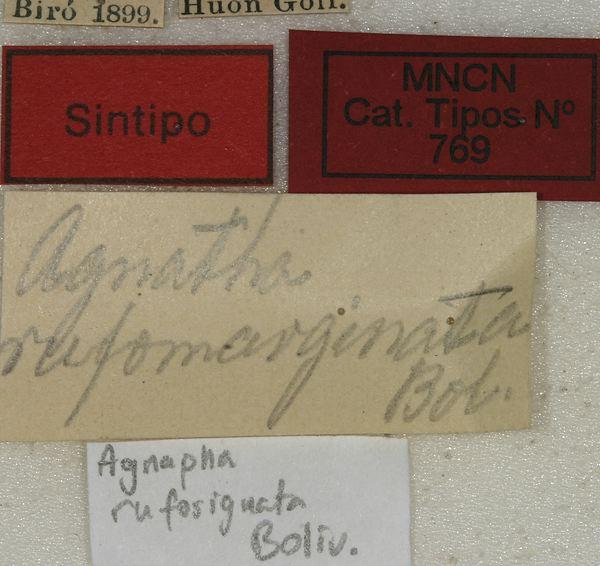 Biró 1899.
Huon Golf.
Sintipo
MNCN
Cat. Tipos Nº
769
Agnatha
rufomarginata
Bol.
Agnapha
rufosignata
Boliv.